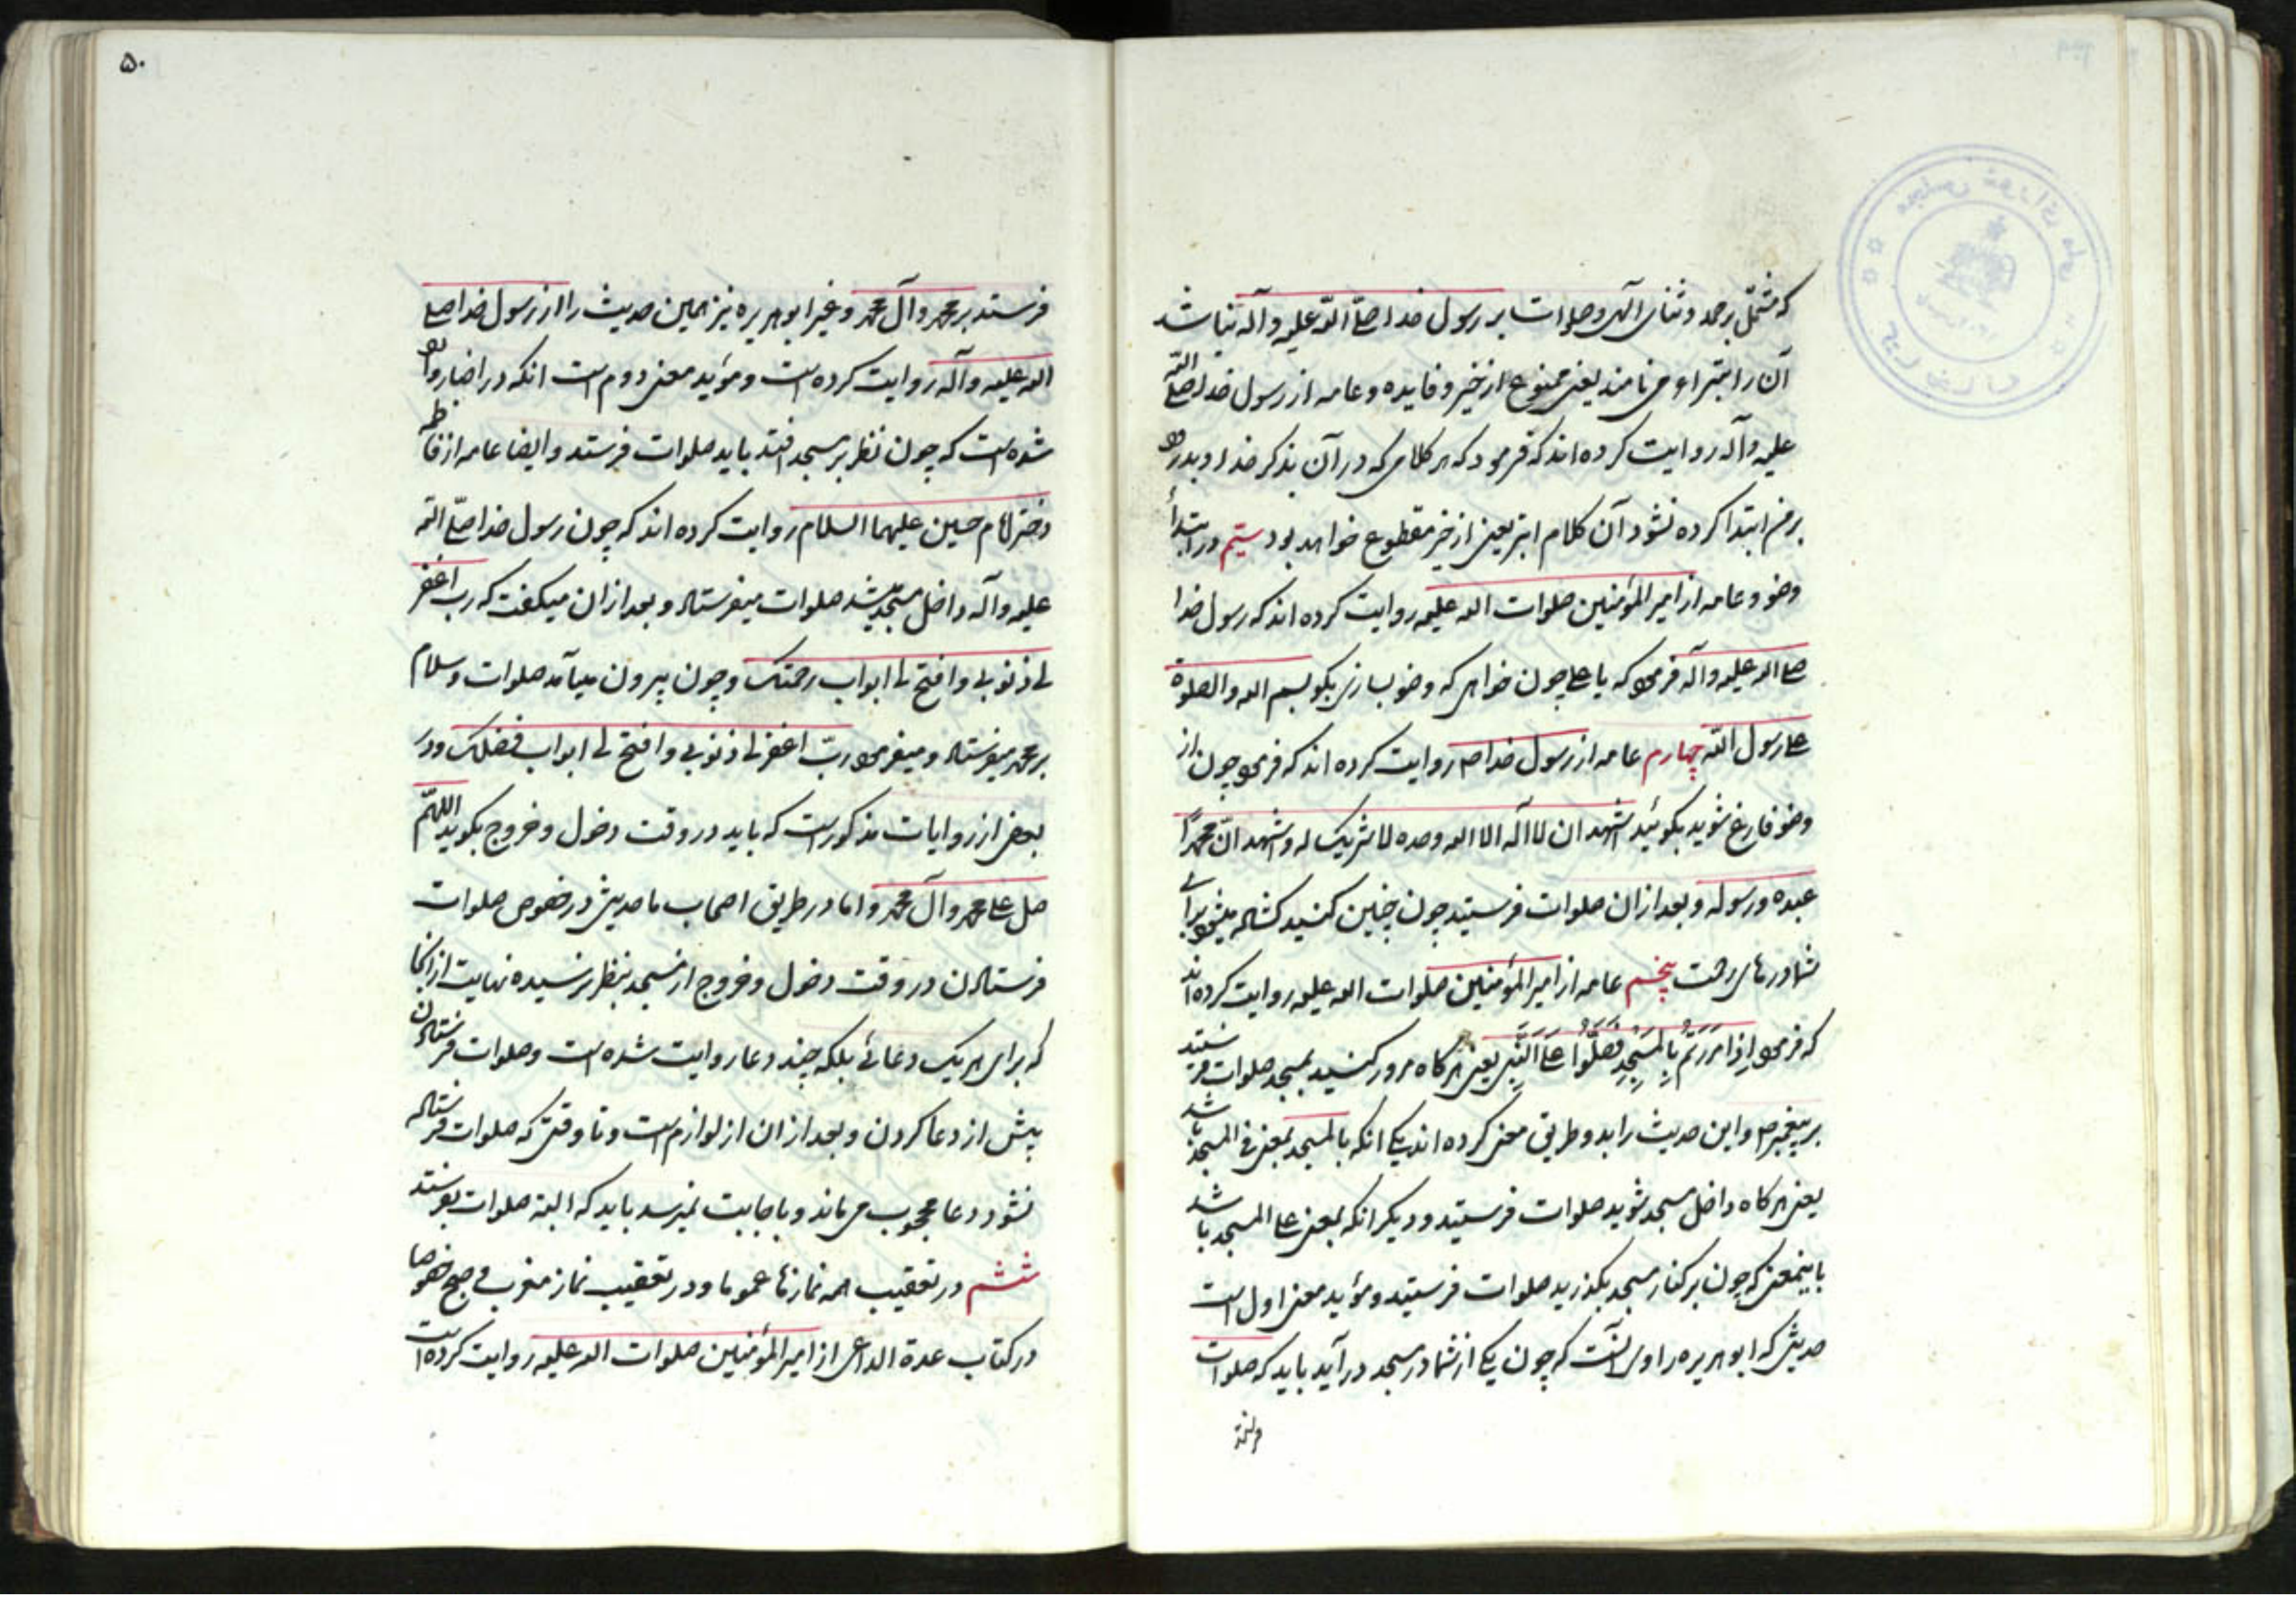 که مشتمل بر حمد و ثنای الهی و صلوات بر رسول خدا صلی الله علیه و آله نباشد
آن را ابتراء می نامند یعنی ممنوع از خیر و فایده و عامه از رسول خدا صلی الله
علیه و آله روایت کرده اند که فرمود که هر کلامی که در آن بذکر خدا و بدرود
بر من ابتدا کرده نشود آن کلام ابتر یعنی از خیر مقطوع خواهد بود سیّم در ابتدأ
وضو و عامه از امیر المؤمنین صلوات الله علیه روایت کرده اند که رسول خدا
صلی الله علیه و آله فرمود که یا علی چون خواهی که وضو بسازی بگو بسم الله والصلوة
علی رسول الله چهارم عامه از رسول خدا ص روایت کرده اند که فرمود چون از
وضو فارغ شوید بگوئید اشهد ان لا اله الا الله وحده لا شریک له و اشهد انّ محمدًا
عبده و رسوله و بعد از ان صلوات فرستید چون چنین کنید کشاده میشود برای
شما درهای رحمت پنجم عامه از امیر المؤمنین صلوات الله علیه روایت کرده اند
که فرمود اِذا مَرَرْتُمْ بِالْمَسْجِدِ فَصَلُّوا عَلَی النَّبِیِّ یعنی هرکاه مرور کنید بمسجد صلوات فرستید
بر پیغمبر ص و این حدیث را بدو طریق معنی کرده اند یکی انکه بالمسجد بمعنی فی المسجد باشد
یعنی هرکاه داخل مسجد شوید صلوات فرستید و دیکر انکه بمعنی علی المسجد باشد
باینمعنی که چون بر کنار مسجد بکذرید صلوات فرستید و مؤید معنی اول است
حدیثی که ابو هریره راوی آنست که چون یکی از شما در مسجد در آید باید که صلوات
فرستد
۵۰
فرستد بر محمد و آل محمد و غیر ابو هریره نیز همین حدیث را از رسول خدا صلی
الله علیه و آله روایت کرده است و مؤید معنی دوم است انکه در اخبار وارد
شده است که چون نظر بر مسجد افتد باید صلوات فرستد و ایضا عامه از فاطمه
دختر امام حسین علیهما السلام روایت کرده اند که چون رسول خدا صلّی الله
علیه و آله داخل مسجد میشد صلوات میفرستاد و بعد از ان میکفت که رب اغفر
لی ذنوبی و افتح لی ابواب رحمتک و چون بیرون میآمد صلوات و سلام
بر محمد میفرستاد و میفرمود ربّ اغفر لی ذنوبی و افتح لی ابواب فضلک و در
بعضی از روایات مذکور است که باید در وقت دخول و خروج بگوید اللهمّ
صل علی محمد و آل محمد و اما در طریق اصحاب ما حدیثی در خصوص صلوات
فرستادن در وقت دخول و خروج از مسجد بنظر نرسیده نهایت از انجا
که برای هر یک دعائی بلکه چند دعا روایت شده است و صلوات فرستادن
پیش از دعا کردن و بعد از ان از لوازم است و تا وقتی که صلوات فرستاده
نشود دعا محجوب می ماند و باجابت نمیرسد باید که البته صلوات بفرستد
ششم در تعقیب همه نمازها عموما و در تعقیب نماز مغرب و صبح خصوصا
در کتاب عدة الداعی از امیر المؤمنین صلوات الله علیه روایت کرده است